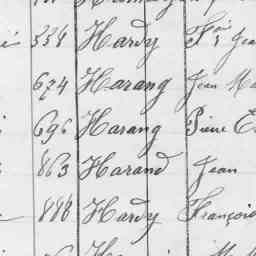 558 Hardy Fçois Jea
624 Harang Jean Ma
696 Harang Pierre E
863 Harand Jean
888 Hardy François